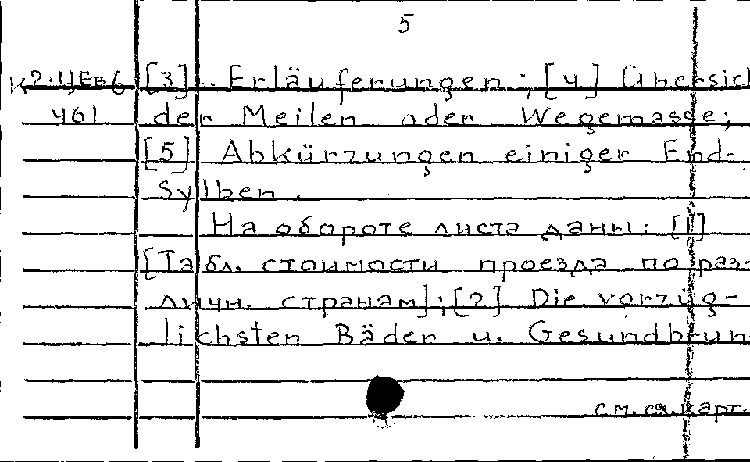 5
К2·ЦЕв6 [3] Erläuferungen; [4] Übersich
461 der Meilen oder Wegemasse;
[5] Abkürzungen einiger End-
Sylben.
На обороте листа даны: [1]
[Табл. стоимости проезда по раз-
личн. странам]; [2] Die vorzüg-
lichsten Bäder u. Gesundbrun
см. сл. карт.